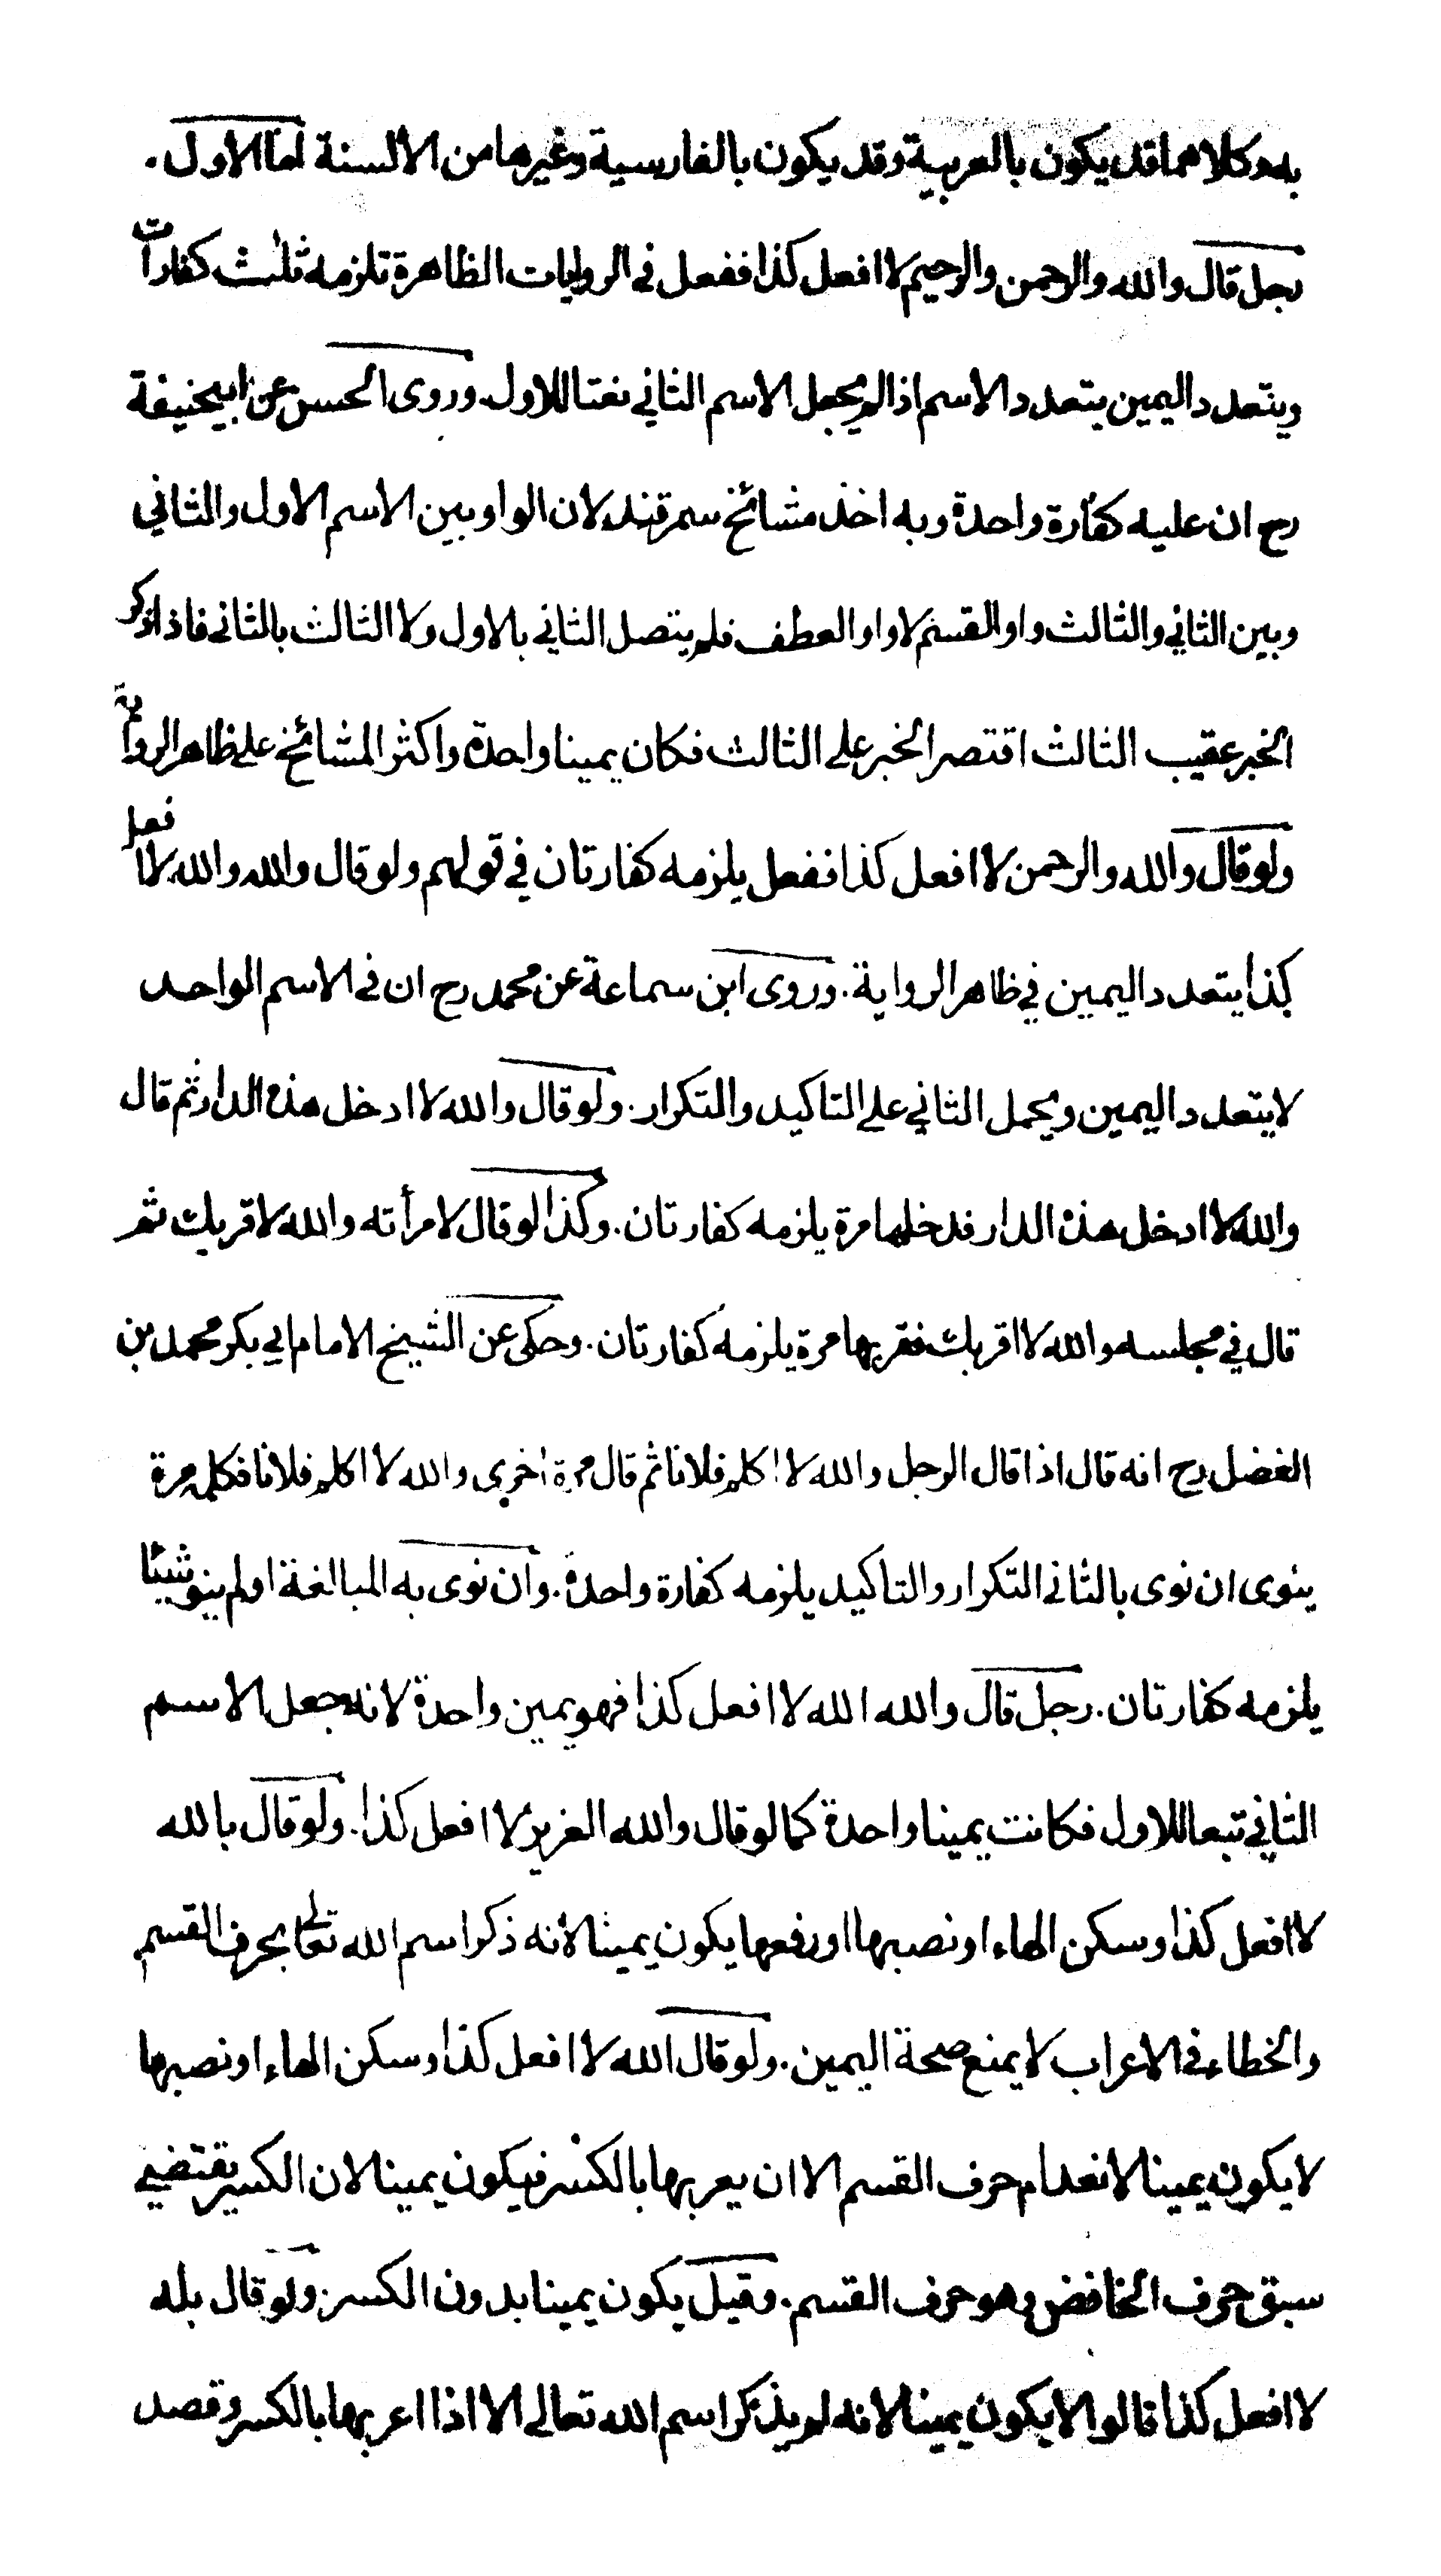 به وكلاهما قد يكون بالعربية وقد يكون بالفارسية وغيرها من الألسنة اما الاول .
رجل قال والله والرحمن والرحيم لا افعل كذا ففعل في الروايات الظاهرة تلزمه ثلث كفارات
ويتعدد اليمين بتعدد الاسم اذا لم يجعل الاسم الثاني نعتا للاول . وروى الحسن عن ابيحنيفة
رح ان عليه كفارة واحدة وبه اخذ مشائخ سمرقند لان الواو بين الاسم الاول والثاني
وبين الثاني والثالث واو القسم لا واو العطف فلم يتصل الثاني بالاول ولا الثالث بالثاني فاذا ذكر
الخبر عقيب الثالث اقتصر الخبر على الثالث فكان يمينا واحدة واكثر المشائخ على ظاهر الرواية
ولو قال والله والرحمن لا افعل كذا ففعل يلزمه كفارتان في قولهم ولو قال والله والله لا افعل
كذا يتعدد اليمين في ظاهر الرواية . وروى ابن سماعة عن محمد رح ان في الاسم الواحد
لا يتعدد اليمين ويحمل الثاني على التاكيد والتكرار . ولو قال والله لا ادخل هذه الدار ثم قال
والله لا ادخل هذه الدار فدخلها مرة يلزمه كفارتان . وكذا لو قال لامرأته والله لا قربك ثم
قال في مجلسه والله لا اقربك فقربها مرة يلزمه كفارتان . وحكى عن الشيخ الامام ابي بكر محمد بن
الفضل رح انه قال اذا قال الرجل والله لا اكلم فلانا ثم قال مرة اخرى والله لا اكلم فلانا فكلم مرة
ينوى ان نوى بالثاني التكرار والتاكيد يلزمه كفارة واحدة . وان نوى به المبالغة اولم ينو شيئا
يلزمه كفارتان . رجل قال والله الله لا افعل كذا فهو يمين واحدة لانه جعل الاسم
الثاني تبعا للاول فكانت يمينا واحدة كما لو قال والله العزيز لا افعل كذا . ولو قال بالله
لا افعل كذا وسكن الهاء او نصبها او رفعها يكون يمينا لأنه ذكر اسم الله تعالى بحرف القسم
والخطاء في الاعراب لا يمنع صحة اليمين . ولو قال الله لا افعل كذا وسكن الهاء او نصبها
لا يكون يمينا لانعدام حرف القسم الا ان يعربها بالكسر فيكون يمينا لان الكسر يقتضي
سبق حرف الخافض وهو حرف القسم . وقيل يكون يمينا بدون الكسر . ولو قال بله
لا افعل كذا قالوا لا يكون يمينا لانه لم يذكر اسم الله تعالى الا اذا اعربها بالكسر وقصد